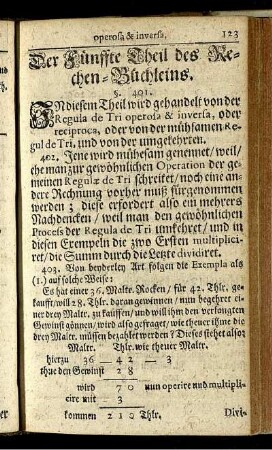 operosa & inversa. 123
Der Fünffte Theil des Re-
chen-Büchleins.
§. 401.
IN diesem Theil wird gehandelt von der
Regula de Tri operosa & inversa, oder
reciproca, oder von der mühsamen Re-
gul de Tri, und von der umgekehrten.
402. Jene wird mühesam genennet/ weil/
ehe man zur gewöhnlichen Operation der ge-
meinen Regulæ de Tri schreitet/ noch eine an-
dere Rechnung vorher muß fürgenommen
werden; diese erfordert also ein mehrers
Nachdencken/ weil man den gewöhnlichen
Procels der Regula de Tri umkehret/ und in
diesen Exempeln die zwo Ersten multiplici-
ret/ die Summ durch die Letzte dividiret.
403. Von beyderley Art folgen die Exempla als
(1.) auf solche Weise:
Es hat einer 36. Maltr. Rocken/ für 42. Thlr. ge-
kaufft/ will 28. Thlr. daran gewinnen/ nun begehret ei-
ner drey Maltr. zu kauffen/ und will ihm den verlangten
Gewinst gönnen/ wird also gefraget/ wie theuer ihme die
drey Maltr. müssen bezahlet werden? Dieses stehet also:
Maltr. Thlr. wie theuer Maltr.
hierzu 36 — 42 — 3
thue den Gewinst 28
wird 70 nun operire und multipli-
cire mit 3
kommen 210 Thlr. Divi-